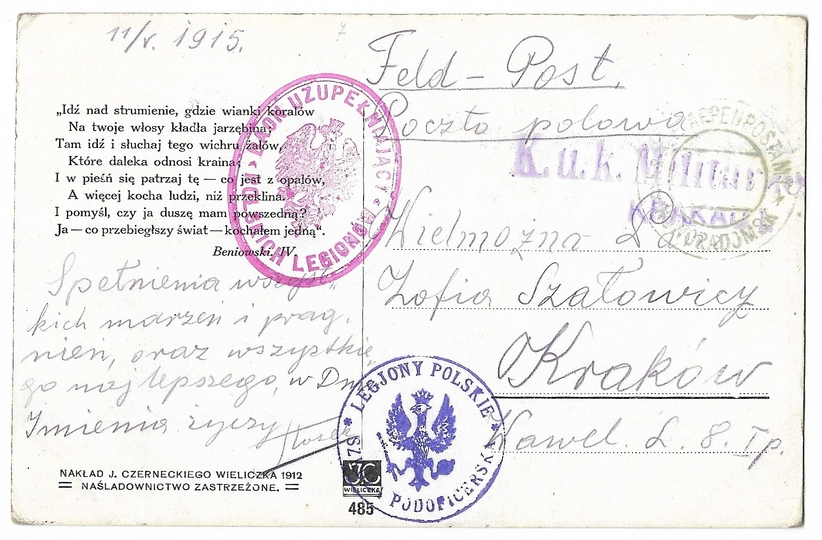 11/V. 1915.
Feld-Post.
Poczta polowa
K. u. k. Militär
KRAKAU
ETAPPENPOSTAMT
„Idź nad strumienie, gdzie wianki koralów
Na twoje włosy kładła jarzębina;
Tam idź i słuchaj tego wichru żalów,
Które daleka odnosi kraina;
I w pieśń się patrzaj tę — co jest z opalów,
A więcej kocha ludzi, niż przeklina.
I pomyśl, czy ja duszę mam powszedną?
Ja — co przebiegłszy świat — kochałem jedną“.
Beniowski. IV.
UZUPEŁNIAJĄCY
POLSKICH LEGIONÓW
Spełnienia wszyst-
kich marzeń i prag-
nień, oraz wszystkie
go najlepszego, w Dniu
Imienia życzy
Wielmożna
Zofia Szatowicz
Kraków
Wawel. L. 8. I p.
LEGJONY POLSKIE
PODOFICERSKA
NAKŁAD J. CZERNECKIEGO WIELICZKA 1912
NAŚLADOWNICTWO ZASTRZEŻONE.
JC
WIELICZKA
485